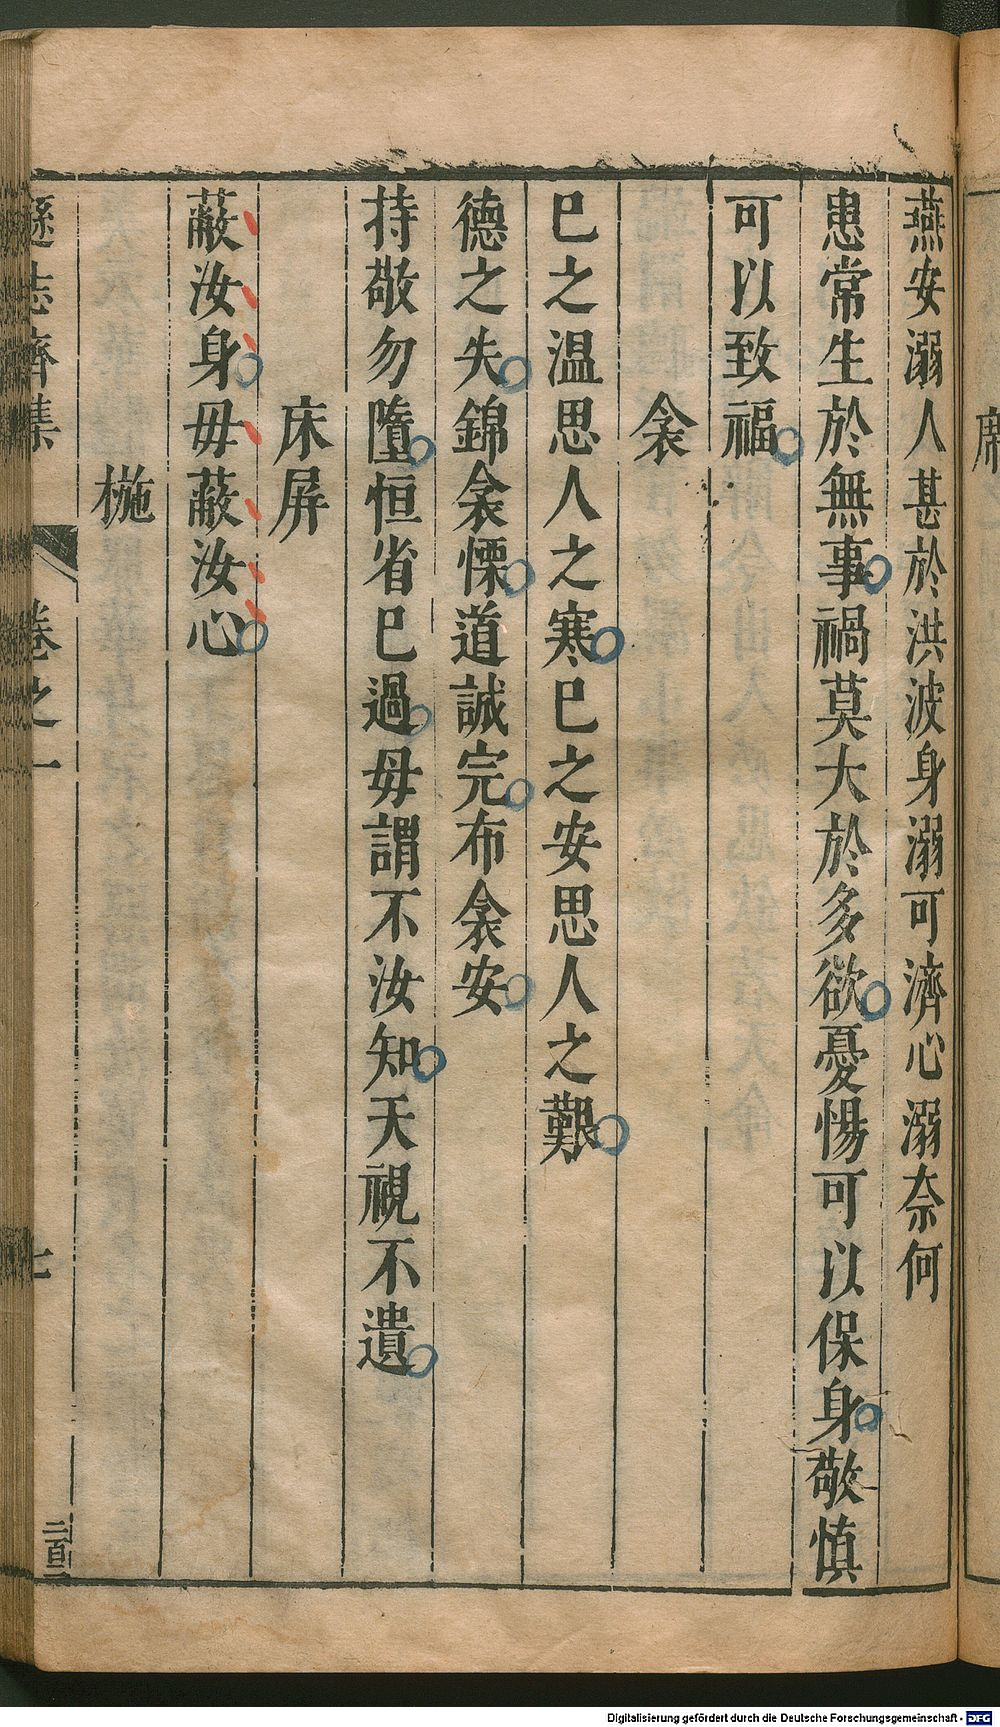 席
燕安溺人甚於洪波身溺可濟心溺奈何
患常生於無事禍莫大於多欲憂惕可以保身敬慎
可以致福
衾
巳之温思人之寒巳之安思人之艱
德之失錦衾慄道誠完布衾安
持敬勿墮恒省巳過毋謂不汝知天視不遺
床屏
蔽汝身毋蔽汝心
椸
遜志齋集 卷之一 七
Digitalisierung gefördert durch die Deutsche Forschungsgemeinschaft - DFG